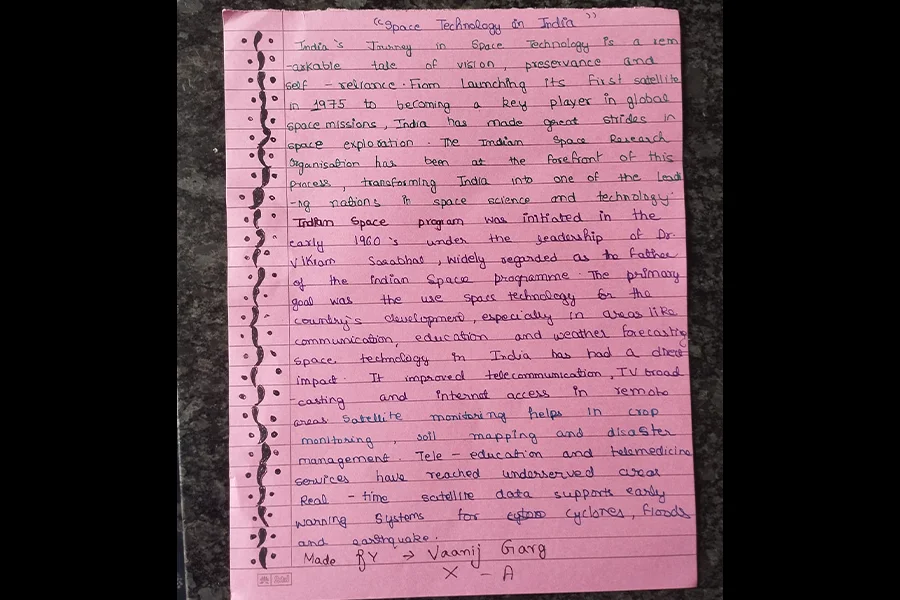 "Space Technology in India"
India's Journey in Space Technology is a rem
-arkable tale of vision, preservance and
self - reliance. From Launching its first satellite
in 1975 to becoming a key player in global
space missions, India has made gereat strides in
space exploration. The Indian Space Research
Organisation has been at the forefront of this
process, transforming India into one of the Lead
-ng nations in space science and technology.
Indian Space program was initiated in the
early 1960's under the leadership of Dr.
Vikram Saaabhai, widely regarded as the Father
of the indian Space programme. The primary
goal was the use space technology for the
country's development, especially in areas like
communication, education and weather forecasting
space technology in India has had a direct
impact. It improved telecommunication, TV broad
-casting and internet access in remote
areas Satellite monitoring helps in crop
monitoring, soil mapping and disaster
management. Tele - education and telemedicine
services have reached underserved areas
Real - time satellite data supports early
warning Systems for cyclones, floods
and earthquake.
Made BY → Vaanij Garg
X - A